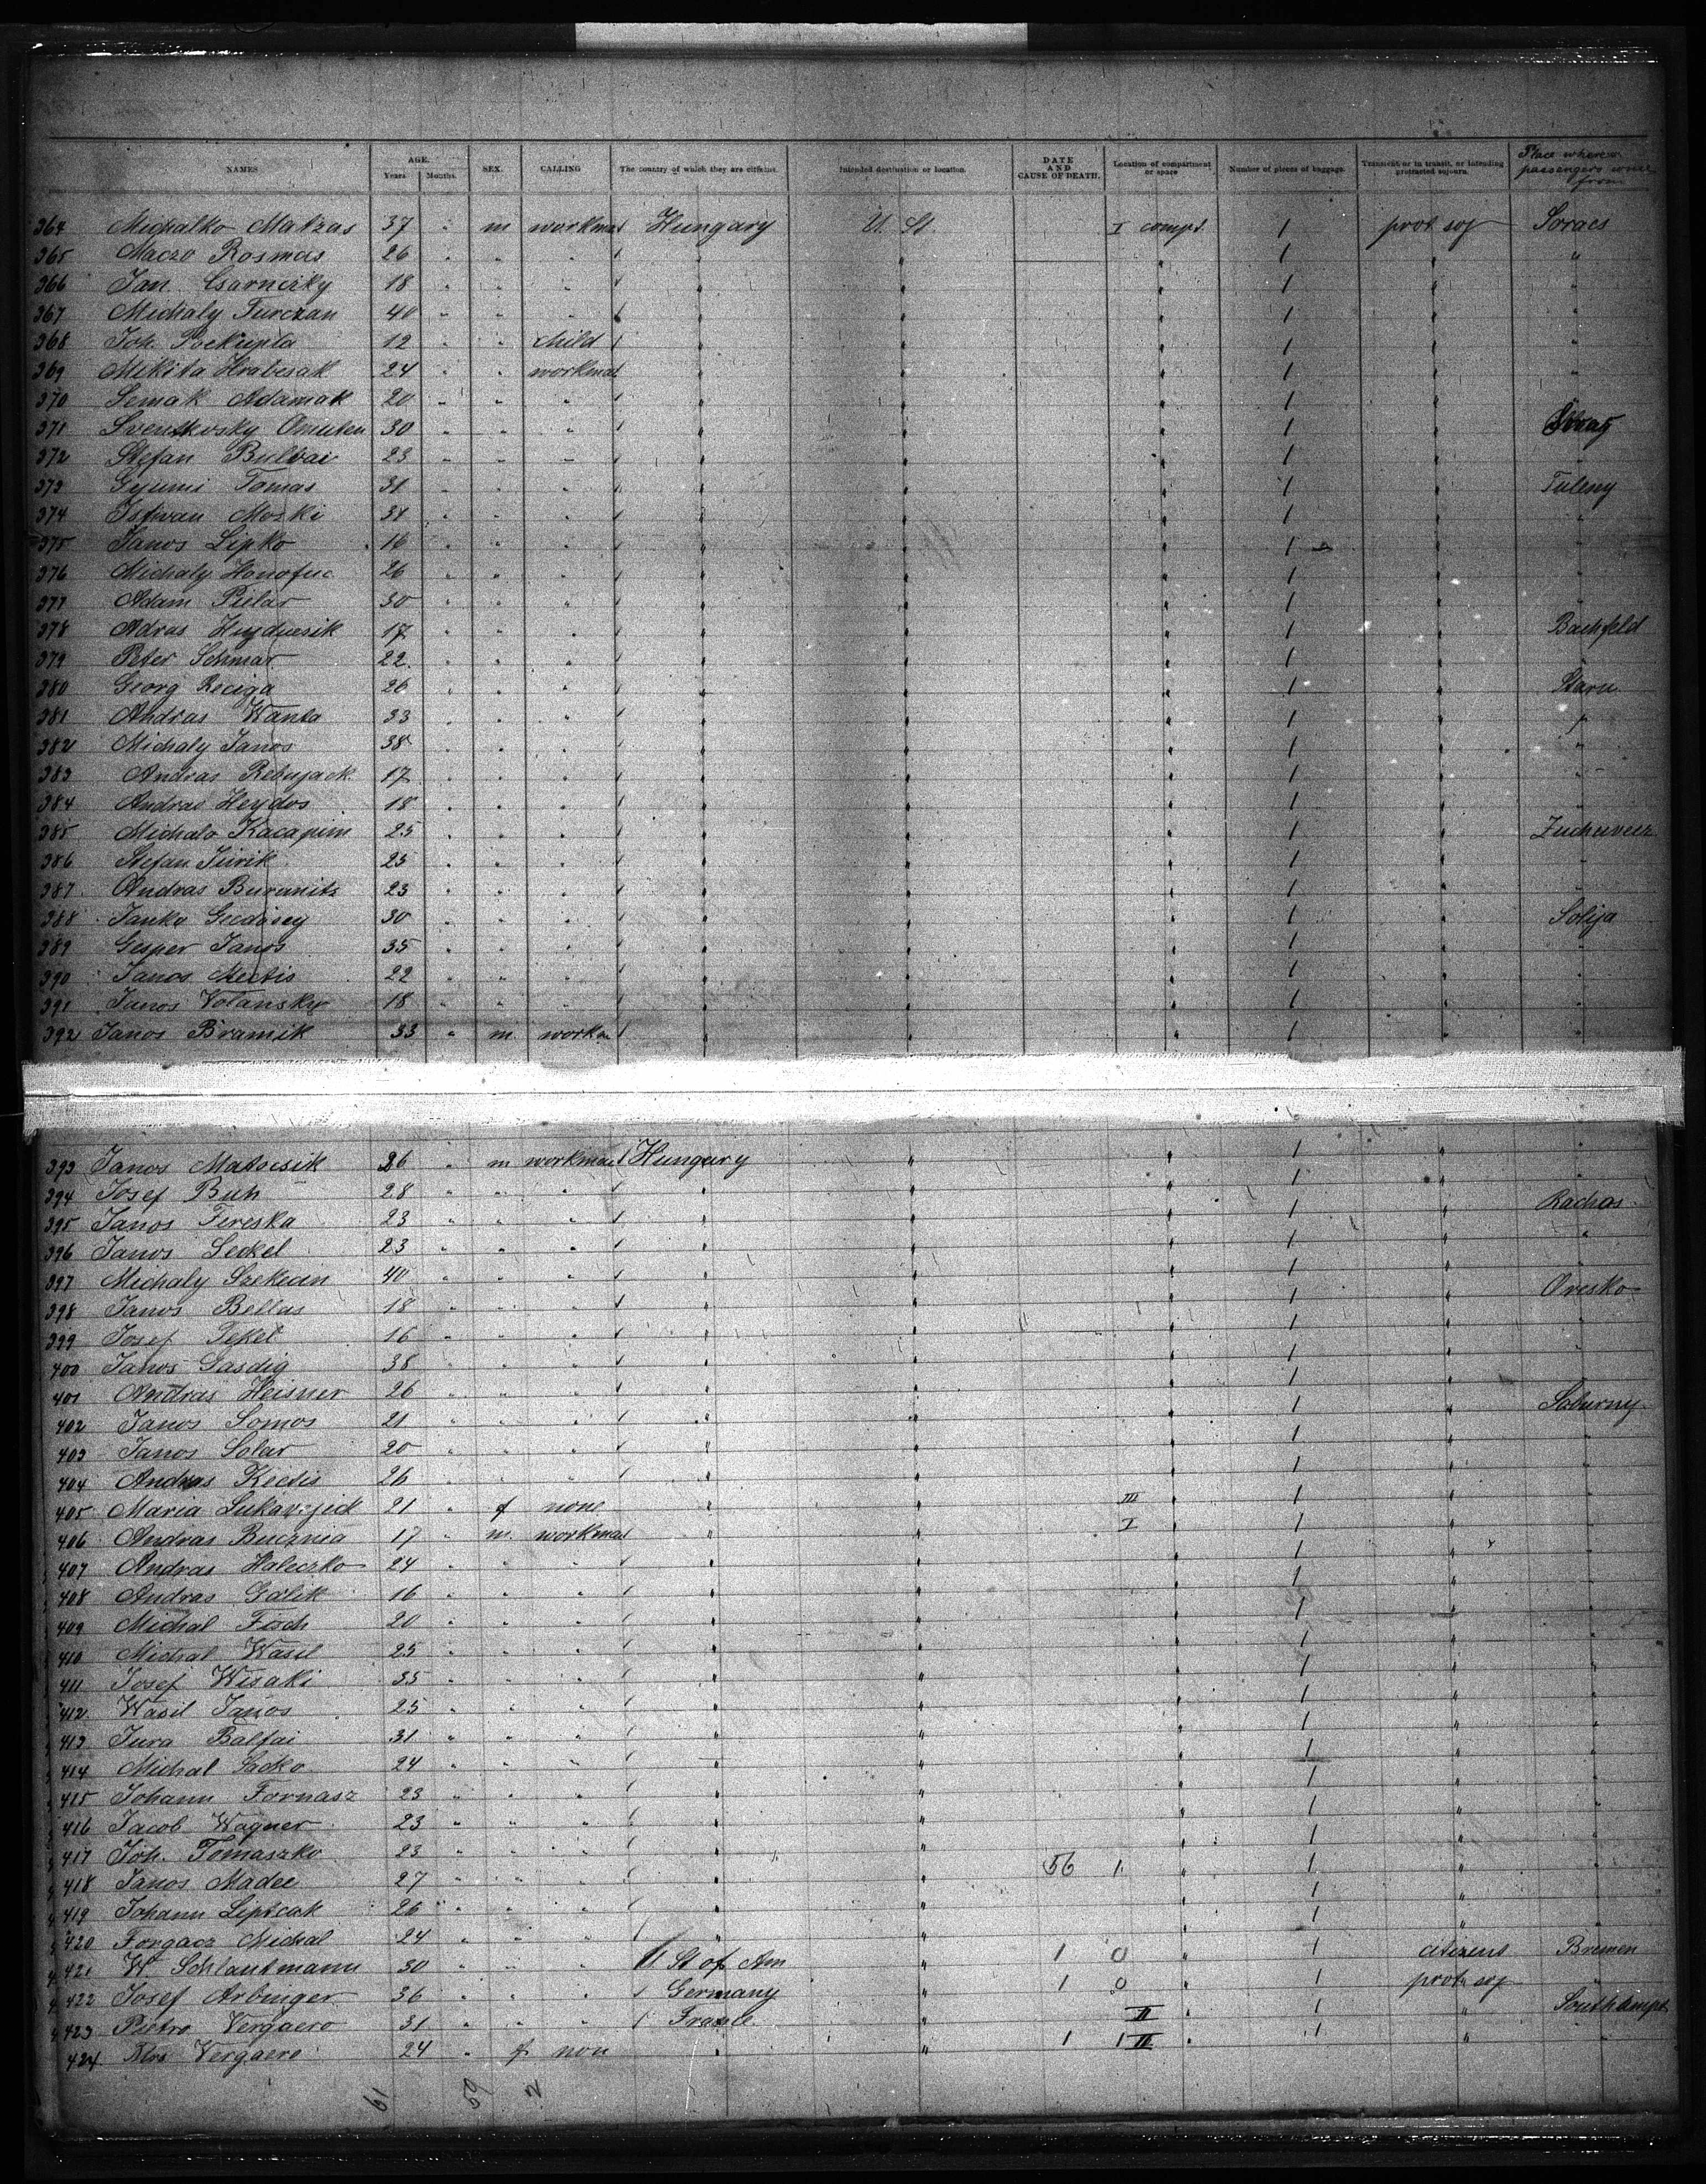 NAMES AGE. Years Months. SEX. CALLING The country of which they are citizens. Intended destination or location. DATE AND CAUSE OF DEATH. Location of compartment or space Number of pieces of baggage. Transient or in transit, or intending protracted sojourn. Place where passengers come from
364 Michalko Matzas 37 " m workman Hungary U. St. I compt. 1 prot soj Soracs
365 Maczo Rosmas 26 " " " " " " 1 " "
366 Jan Csarnizky 18 " " " " " " 1 " "
367 Michaly Turczan 40 " " " " " " 1 " "
368 Joh. 12 " " child " " " 1 " "
369 Mikita Hrabcsak 24 " " workman " " " 1 " "
370 Semak Adamak 20 " " " " " " 1 "
371 Sventkovsky 30 " " " " " " 1 "
372 Stefan Bulvai 23 " " " " " " 1 " "
373 Gyumi Tomas 31 " " " " " " 1 " Tuleny
374 Istwan Moski 38 " " " " " " 1 " "
375 Janos Lipko 16 " " " " " " 1 " "
376 Michaly Honofuc 26 " " " " " " 1 " "
377 Adam Pielar 30 " " " " " " 1 " "
378 Adras 17 " " " " " " 1 " Bachfeld
379 Peter Schmar 22 " " " " " " 1 " "
380 Georg Reciga 26 " " " " " " 1 " Staru
381 Andras Wanta 33 " " " " " " 1 " "
382 Michaly Janos 38 " " " " " " 1 " "
383 Andras Rebujack 17 " " " " " " 1 " "
384 Andras Heydos 18 " " " " " " 1 "
385 Michalo Kacapim 25 " " " " " " 1 "
386 Stefan Jurik 25 " " " " " " 1 " "
387 Andras Buranits 23 " " " " " " 1 "
388 Janko 30 " " " " " " 1 " Solija
389 Gesper Janos 35 " " " " " " 1 " "
390 Janos Mectis 22 " " " " " " 1 " "
391 Janos Volansky 18 " " " " " " 1 " "
392 Janos Bramik 33 " m workm " " " 1 " "
393 Janos Matocsik 26 " m workman Hungary " " 1 " "
394 Josef Buh 28 " " " " " " 1 "
395 Janos Fereska 23 " " " " " " 1 " Rachos
396 Janos Seckel 23 " " " " " " 1 " "
397 Michaly Szekecin 40 " " " " " " 1 "
398 Janos Bellas 18 " " " " " " 1 " Oresko
399 Josef Pekel 16 " " " " " " 1 " "
400 Janos Sasdig 38 " " " " " " 1 " "
401 Andras Heisner 26 " " " " " " 1 "
402 Janos Somos 21 " " " " " " 1 " Saburny
403 Janos Solar 20 " " " " " " 1 " "
404 Andras Kectis 26 " " " " " " 1 " "
405 Maria Lukavzjick 21 " f none " " III " 1 " "
406 Andras Bucznia 17 " m workman " " I " 1 " "
407 Andras Haleczko 24 " " " " " " 1 " "
408 Andras Galik 16 " " " " " " 1 " "
409 Michal Fisch 20 " " " " " " 1 " "
410 Michal Wasil 25 " " " " " " 1 " "
411 Josef Wisaki 35 " " " " " " 1 " "
412 Wasil Janos 25 " " " " " " 1 " "
413 Jura Balfai 31 " " " " " " 1 " "
414 Michal Sacko 24 " " " " " " 1 " "
415 Johann Fornasz 23 " " " " " " 1 " "
416 Jacob Wagner 23 " " " " " " 1 "
417 Joh. Tomaszko 23 " " " " " " 1 "
418 Janos Madee 27 " " " " " 56 1 " 1 "
419 Johann Lipscak 26 " " " " " " 1 "
420 Forgacz Michal 24 " " " " " " 1 "
421 W. Schlautmann 30 " " " U St of Am " 1 0 " 1 citizens Bremen
422 Josef Arbinger 36 " " " Germany " 1 0 " 1 prot soj "
423 Pietro Vergaero 31 " " " France " II " 1 " Southampt
424 Mrs Vergaero 24 " f non " " 1 1 II " 1 "
61 59 2